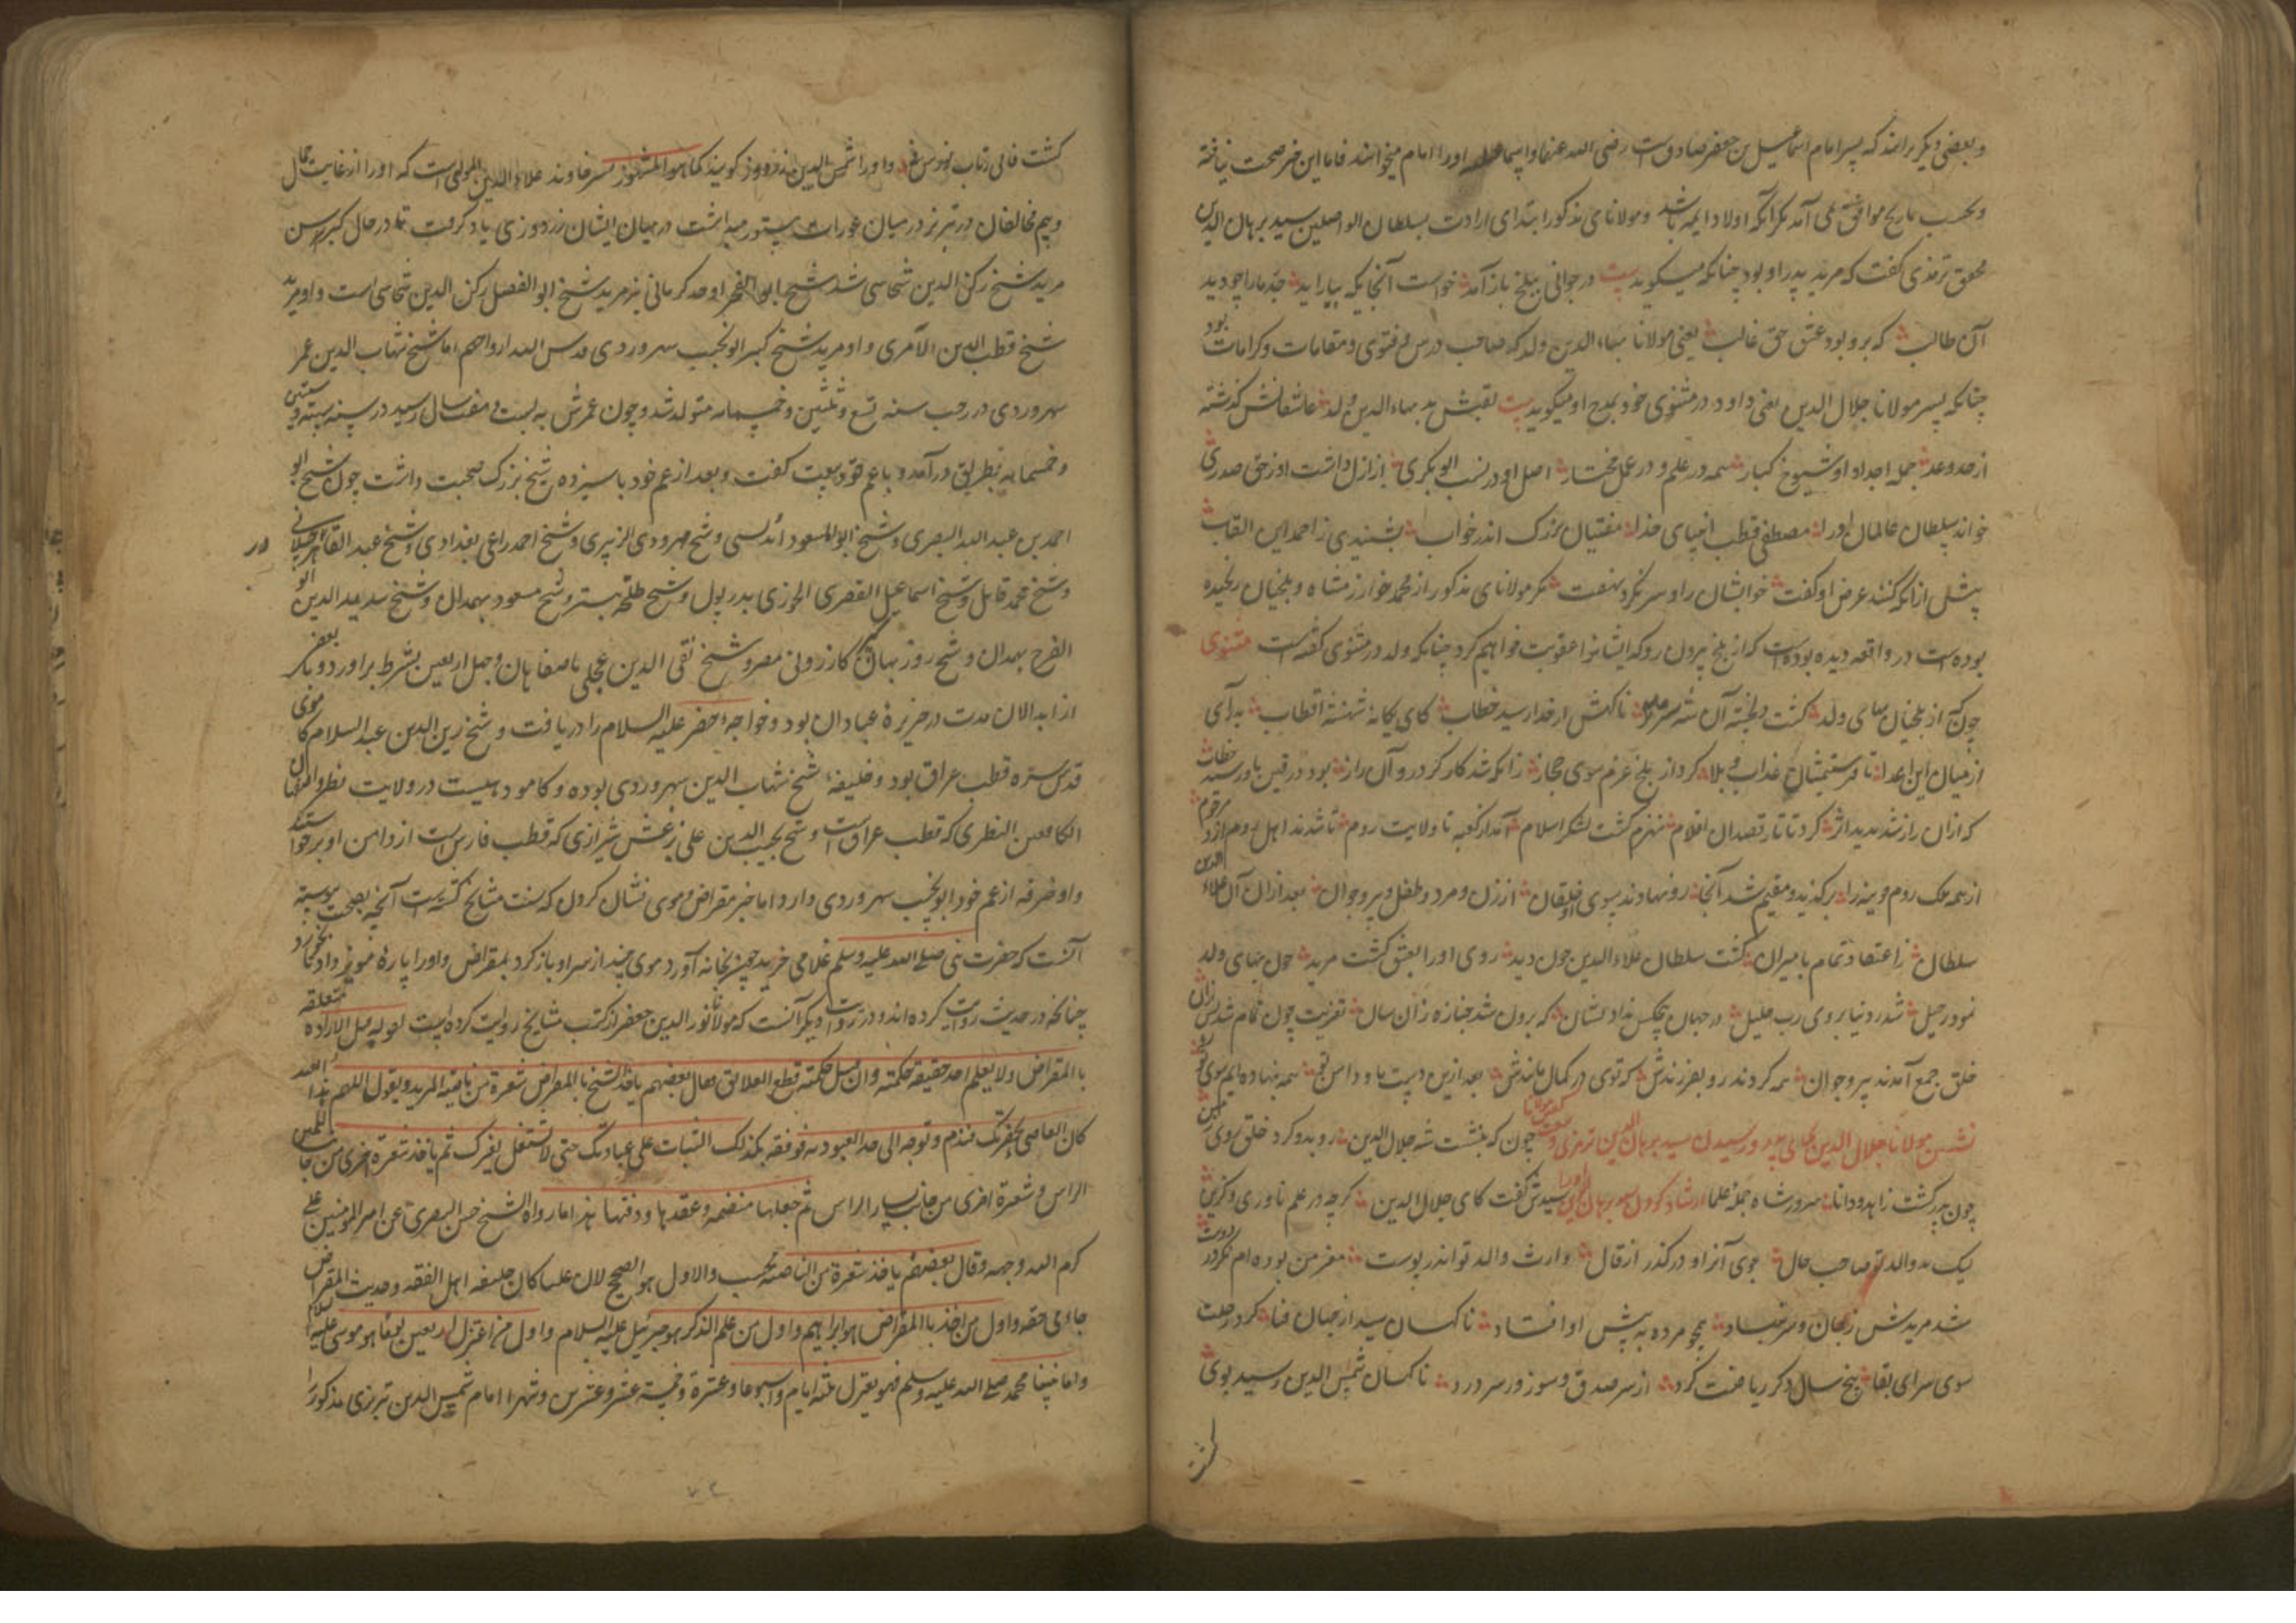 و بعضی دیگر برانند که پسر امام اسماعیل بن جعفر صادق است رضی الله عنهما و اورا امام میخوانند فاما این خبر صحت نیافته
و بحسب تاریخ موافق نمی آمد مگر آنکه اولاد ایمه باشد و مولانای مذکور ابتدای ارادت بسلطان الواصلین سید برهان الدین
محقق ترمذی گفت که مرید پدر او بود چنانکه میگوید بیت در جوانی ببلخ باز آمد خواست آنجایکه بیاراید جد مارا چو دید
آن طالب که برو بود عشق حق غالب یعنی مولانا بهاء الدین ولد که صاحب درس و فتوی و مقامات و کرامات بود
چنانکه پسر مولانا جلال الدین یعنی داود در مثنوی خود بمدح او میگوید بیت لقبش بد بهاء الدین ولد عاشقانش گذشته
از حد و عد جمله اجداد او شیوخ کبار همه در علم و در عمل مختار اصل او در نسب ابوبکری از ازل داشت او ز حق صدری
خواند سلطان عالمان اورا مصطفی قطب انبیای خدا مفتیان بزرگ اندر خواب بشنیدی ز احمد این القاب
پیش از آنکه کنند عرض او گفت خوابشان را و سر نکرد نهفت مگر مولانای مذکور از محمد خوارزمشاه و بلخیان رنجیده
بوده است در واقعه دیده بوده است که از بلخ بیرون رو که ایشانرا عقوبت خواهیم کرد چنانکه ولد در مثنوی گفته است مثنوی
چونکه از بلخیان بهای ولد گشت دلخسته آن شه سرمد ناگهش از خدا رسید خطاب کای یگانه شهنشه اقطاب بدر آی
از میان این اعدا تا فرستیمشان عذاب و بلا کرد از بلخ عزم سوی حجاز زانکه شد کارگر درو آن راز بود در رفتن و رسید
که ازان راز شد پدید اثر کرد تاتار قصد آن اقلام منهزم گشت لشکر اسلام آمد از کعبه تا ولایت روم تا شدند اهل روم ازو
از همه ملک روم قونیه را برگزید و مقیم شد آنجا رو نهادند سوی او خلقان از زن و مرد و طفل و پیر و جوان بعد ازان آن علاء الدین
سلطان ز اعتقاد تمام با میران گشت سلطان علاء الدین چون دید روی اورا بعشق گشت مرید چون بهای ولد
نمود رحیل شد ز دنیا بروی رب جلیل در جهان هیچکس نداد نشان که برون شد جنازه زان سان تعزیت چون تمام شد پس ازان
خلق جمع آمدند پیر و جوان همه کردند رو بفرزندش که توی در کمال مانندش بعد ازین دست ما و دامن تو همه بنهاده ایم سوی تو
نشستن مولانا جلال الدین بجای پدر و رسیدن سید برهان الدین ترمذی چون که بنشست شه جلال الدین رو بدو کرد خلق روی زمین
چون پدر گشت زاهد و دانا سرور شاه جمله علما سیدش گفت کای جلال الدین گرچه در علم نادری و گزین
لیک بد والد تو صاحب حال جوی آنرا و درگذر از قال وارث والد تو اندر پوست مغز من بوده ام نگر در دوست
شد مریدش ز جان و سر بنهاد همچو مرده به پیش او افتاد ناگهان سید از جهان فنا کرد رحلت
سوی سرای بقا پنج سال دگر ریاضت کرد از سر صدق و سوز و ز سر درد ناگهان شمس الدین رسید بوی
گشت
گشت فانی ز تاب نورش و اورا شمس الدین زردوز گویند کما هو المشهور پسر خاوند علاء الدین الموتی است که اورا از غایت جمال
و بیم مخالفان در تبریز در میان عورات مستور میداشت در میان ایشان زردوزی یاد گرفت تا در حال کبر سن
مرید شیخ رکن الدین سنجاسی شد شیخ اوحد کرمانی نیز مرید شیخ ابوالفضل رکن الدین سنجاسی است و او مرید
شیخ قطب الدین و او مرید شیخ کبیر ابو نجیب سهروردی قدس الله ارواحهم اما شیخ شهاب الدین عمر
سهروردی در رجب سنه تسع و ثلثین و خمسمایه متولد شد و چون عمرش به بیست و هفت سال رسید در سنه ستین
و خمسمایه بطریق درآمد و با عم خود بیعت گفت و بعد از عم خود با سیزده شیخ بزرگ صحبت داشت چون شیخ ابو
احمد بن عبد الله البصری و شیخ ابوالسعود اندلسی و شیخ الزبیری و شیخ احمد بغدادی و شیخ عبد القادر جیلانی
و شیخ محمد و شیخ اسماعیل القصری و شیخ طلحه و شیخ مسعود بهمدان و شیخ سدید الدین ابو
الفرح بهمدان و شیخ روزبهان کازرونی مصر و شیخ تقی الدین عجلی باصفاهان و چهل اربعین بشرط برآورد و با بعضی
از ابدالان مدت در جزیره عبادان بود و خواجه خضر علیه السلام را دریافت و شیخ زین الدین عبد السلام کاموئی
قدس سره قطب عراق بود و خلیفه شیخ شهاب الدین سهروردی بوده و کامو دهیست در ولایت نطنز
النطنزی که قطب عراق است و شیخ نجیب الدین علی بزغش شیرازی که قطب فارس است از دامن او برخواستند
و او خرقه از عم خود ابو نجیب سهروردی دارد اما خبر مقراض و موی نشان کردن که سنت مشایخ گشته است آنچه بصحت پیوسته
آنست که حضرت نبی صلی الله علیه و سلم غلامی خرید چون بخانه آورد موی چند از سر او باز کرد بمقراض و اورا پاره مویز داد تا بخورد
چنانکه در حدیث روایت کرده اند و در روایت دیگر آنست که مولانا نور الدین جعفر از کتب مشایخ روایت کرده است
بالمقراض ولا یعلم احد حقیقة حکمته وان قیل حکمته قطع العلائق فقال بعضهم یاخذ الشیخ بالمقراض شعرة من ناصیة المرید ویقول اللهم هذا العبد
کان العاصی بحضرتک فندم وتوجه الی العبودیه فوفقه بکذلک الثبات علی عبادتک حتی لا یشتغل بغیرک ثم یاخذ شعرة اخری من جانب الیمین
الراس وشعرة اخری من جانب یسار الراس ثم جعلها منضمة وعقدها ودفنها هذا ما رواه الشیخ حسن البصری عن امیر المومنین علی
کرم الله وجهه وقال بعضهم یاخذ شعرة من الناصیة فحسب والاول هو الصحیح لان علیا کان خلیفه اهل الفقه وحدیث المقراض
جاء فی حقه واول من اخذ بالمقراض هو ابراهیم واول من علم الذکر هو جبرئیل علیه السلام واول من اعتزل اربعین یوما هو موسی علیه السلام
واما نبینا محمد صلی الله علیه وسلم فهو یعتزل ثلثة ایام واسبوعا وعشرة وخمسة عشر وعشرین وشهرا امام شمس الدین تبریزی مذکور را